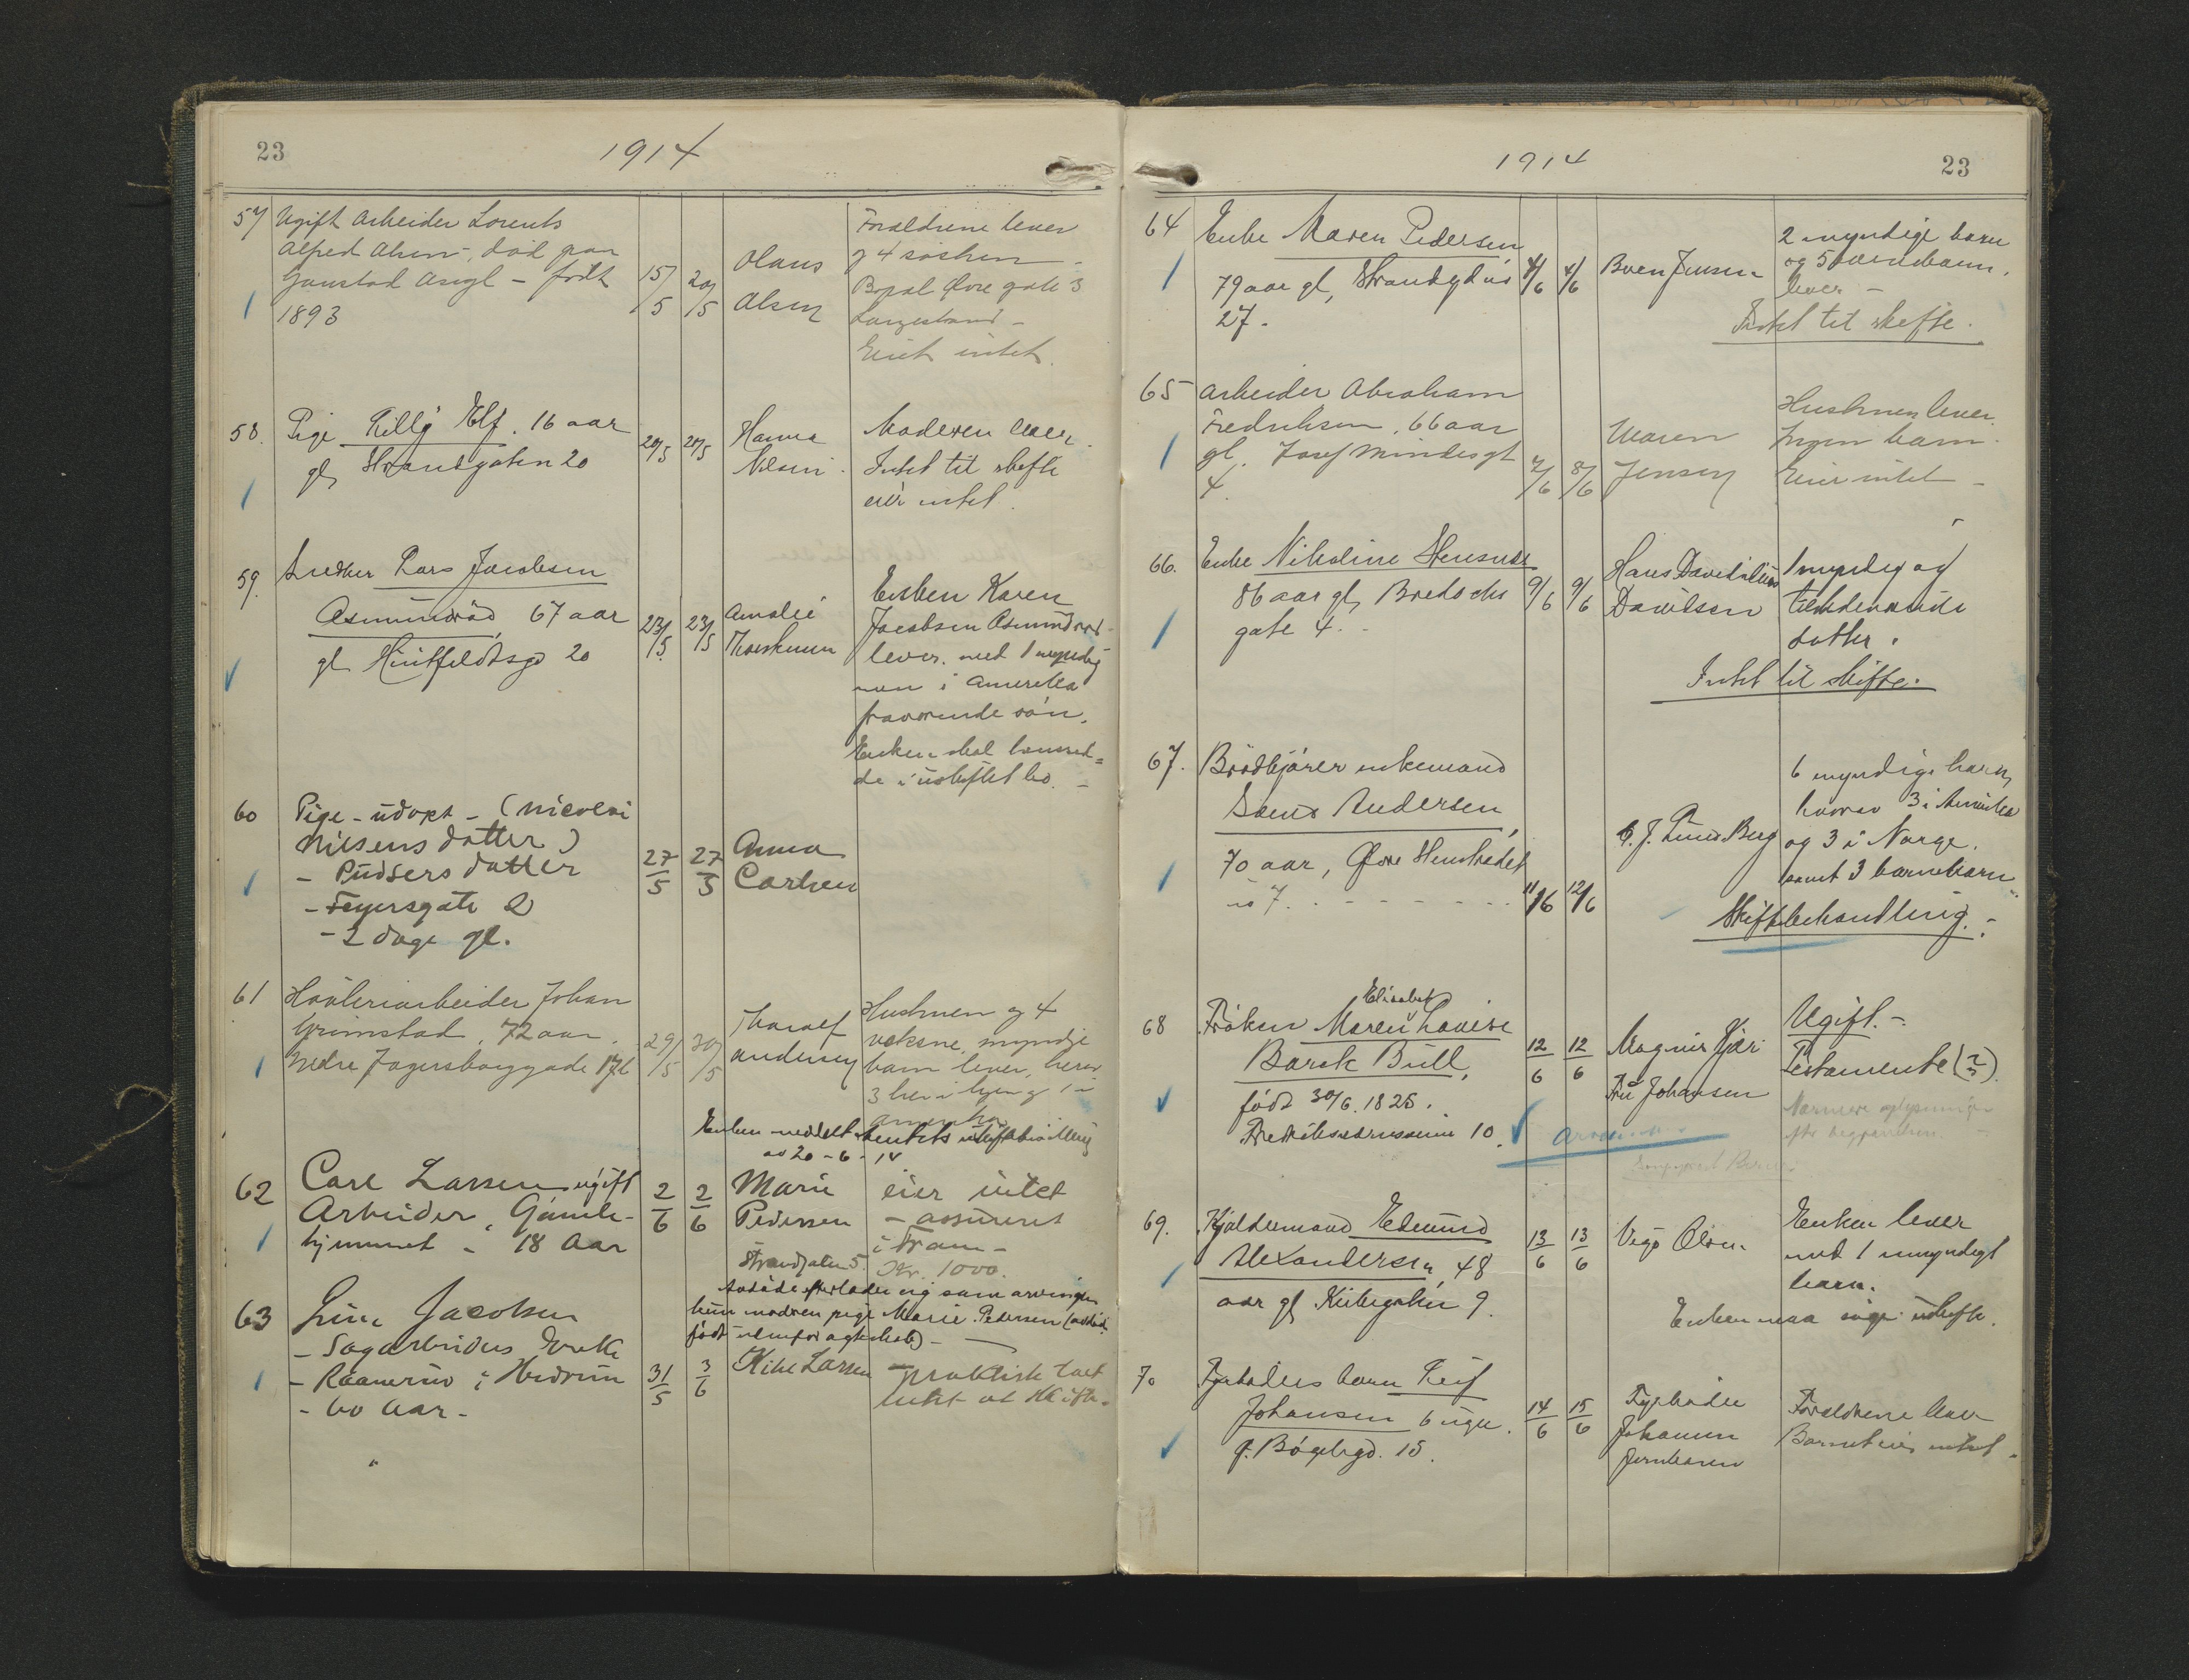 23
1914
57 Ugift Arbeider Lorents
Alfred Olsen, død paa
Gaustad Asyl - født
1893
15/5 20/5
Olaus
Olsen
Forældrene lever
og 4 søsken -
Øvre gate 3
Langestrand -
Eiet intet.
58. Pige Elf. 16 aar
gl, Strandgaten 20
20/5 20/5
Hanna
Nilsen.
Moderen lever.
Intet til skifte
eier intet.
59. Lars Jacobsen
Asmundrød 67 aar
gl Huitfeldtsgd 20
23/5. 23/5
Amalie
Enken Karen
Jacobsen Asmundrød
lever. med 1 myndig
i Amerika
fraværende søn.
Enken skal hensid=
de i uskiftet bo. -
60 Pige - udøpt - (Nicolai
Nilsens datter)
- Pudsers datter
- Feyersgate 2
- 2 dage gl.
27/5 27/5
Anna
Carlsen
61 Høvleriarbeider Johan
Grimstad, 72 aar.
Nedre Jegersborggade
29/5 30/5
Thoralf
Andersen
Hustruen og 4
voksne, myndige
barn lever, herav
3 her i byen og 1 i
Amerika
Enken meddelt uskiftebevilling
av 20-6-14
62 Carl Larsen ugift
Arbeider, Gamle-
hjemmet - 18 Aar
2/6 2/6
Marie
Pedersen
Strandgaten 5.
eier intet
- assureret
i Fram -
Kr. 1000.
Avdøde efterlader sig som arvinger
kun modren pige Marie Pedersen (avdøde
født utenfor ægteskab) -
63 Line Jacobsen
- Sagarbeiders Enke
- Raanerud i Hedrum
- 60 Aar -
31/5 3/6
Larsen
- praktisk talt
intet at skifte.
1914
23
64 Enke Maren Pedersen
79 aar gl, Strandgd no
27.
4/6 4/6
Jensen
2 myndige barn
og 5 barnebarn.
lever -
Intet til skifte.
65 Arbeider Abraham
Fredriksen, 66 aar
gl. Josef Mindes gt
4.
7/6 8/6
Maren
Jensen
Hustruen lever.
Ingen barn.
Eier intet -
66. Enke Nikoline
86 aar gl, Bredochs
gate 4. -
9/6 9/6
Hans
Davidsen
1 myndig og
tilstedeværende
datter.
Intet til skifte.
67. Brødkjører enkemand
Andersen,
70 aar, Øvre Stenstrædet
no 7. - - - - - - -
11/6 12/6
Berg
6 myndige barn,
hvorav 3 i Amerika
og 3 i Norge.
samt 3 barnebarn
Skiftebehandling. -
68 Frøken Maren Elisabet Lovise
Barck Bull,
født 30/6. 1825.
10.
12/6 12/6
Magnus Kjær
Fru Johansen
Ugift. -
Testamente (?).
Nærmere oplysninger
efter begravelsen. -
69. Kjøldemand Edmund
Alexandersen, 48
aar gl Kirkegaten 9.
13/6 13/6
Olsen
Enken lever
med 1 umyndigt
barn.
Enken maa uskifte.
70 Fyrbøders barn Leif
Johansen 6 uger.
Ø. Bøgelsgd. 15.
14/6 15/6
Fyrbøder
Johansen
Forældrene lever
Barnet eier intet.